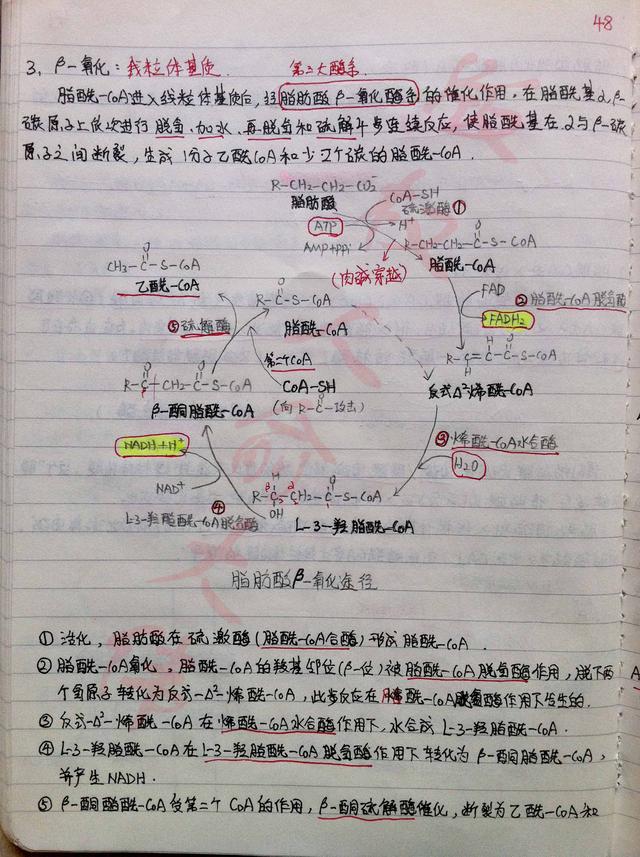 48
3、β-氧化：线粒体基质. 第三大酶系.
脂酰-CoA进入线粒体基质后，经脂肪酸β-氧化酶系的催化作用，在脂酰基α,β-
碳原子上依次进行脱氢、加水、再脱氢和硫解4步连续反应，使脂酰基在α与β-碳
原子之间断裂，生成1分子乙酰CoA和少二个碳的脂酰-CoA.
R-CH2-CH2-CO2-
脂肪酸
CoA-SH
硫激酶①
ATP
H+
AMP+PPi
(肉碱穿越)
O
R-CH2-CH2-C-S-CoA
脂酰-CoA
O
CH3-C-S-CoA
乙酰-CoA
O
R-C-S-CoA
脂酰-CoA
FAD
②脂酰-CoA脱氢酶
FADH2
⑤硫解酶
第二个CoA
CoA-SH
(向R-C-攻击)
H O
R-C=C-C-S-CoA
H
反式Δ²烯酰-CoA
O O
R-C-CH2-C-S-CoA
β-酮脂酰-CoA
③烯酰-CoA水合酶
H2O
NADH+H+
NAD+
④
L-3-羟脂酰-CoA脱氢酶
H O
β α
R-C-CH2-C-S-CoA
OH
L-3-羟脂酰-CoA
脂肪酸β-氧化途径
①活化，脂肪酸在硫激酶(脂酰-CoA合酶)形成脂酰-CoA.
②脂酰-CoA氧化，脂酰-CoA的羰基邻位(β-位)被脂酰-CoA脱氢酶作用，脱下两
个氢原子转化为反式-Δ²-烯酰-CoA，此步反应在脂酰-CoA脱氢酶作用下发生的.
③反式-Δ²-烯酰-CoA在烯酰-CoA水合酶作用下，水合成L-3-羟脂酰-CoA.
④L-3-羟脂酰-CoA在L-3-羟脂酰-CoA脱氢酶作用下转化为β-酮脂酰-CoA，
并产生NADH.
⑤β-酮脂酰-CoA受第二个CoA的作用，β-酮硫解酶催化，断裂为乙酰-CoA和